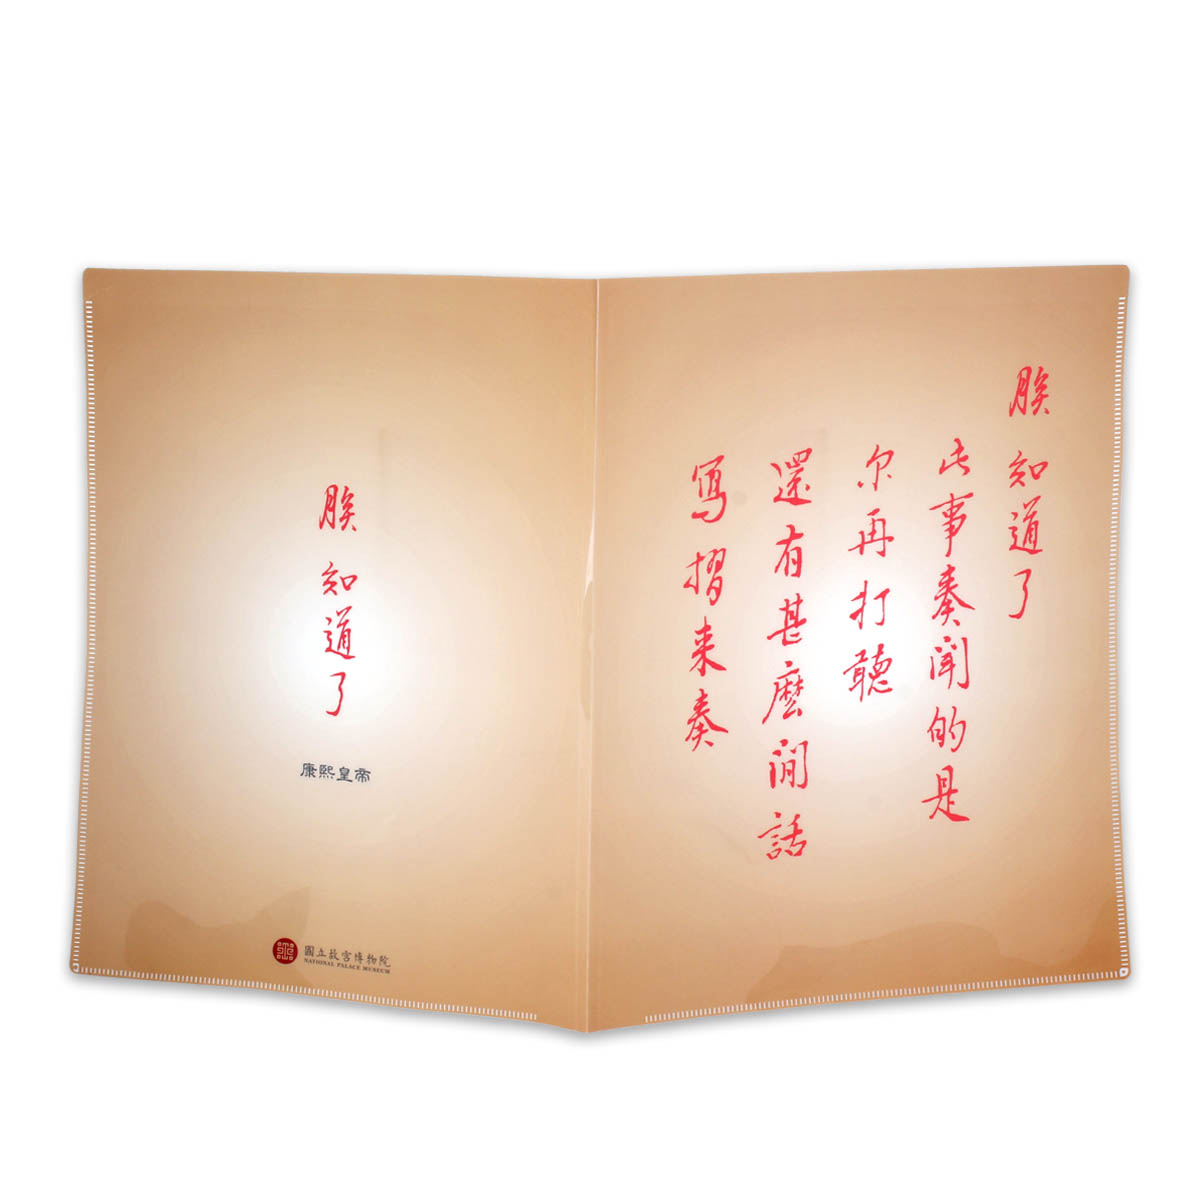 朕知道了
此事奏聞的是
尔再打聽
還有甚麼閒話
寫摺来奏
朕知道了
康熙皇帝
國立故宮博物院
NATIONAL PALACE MUSEUM